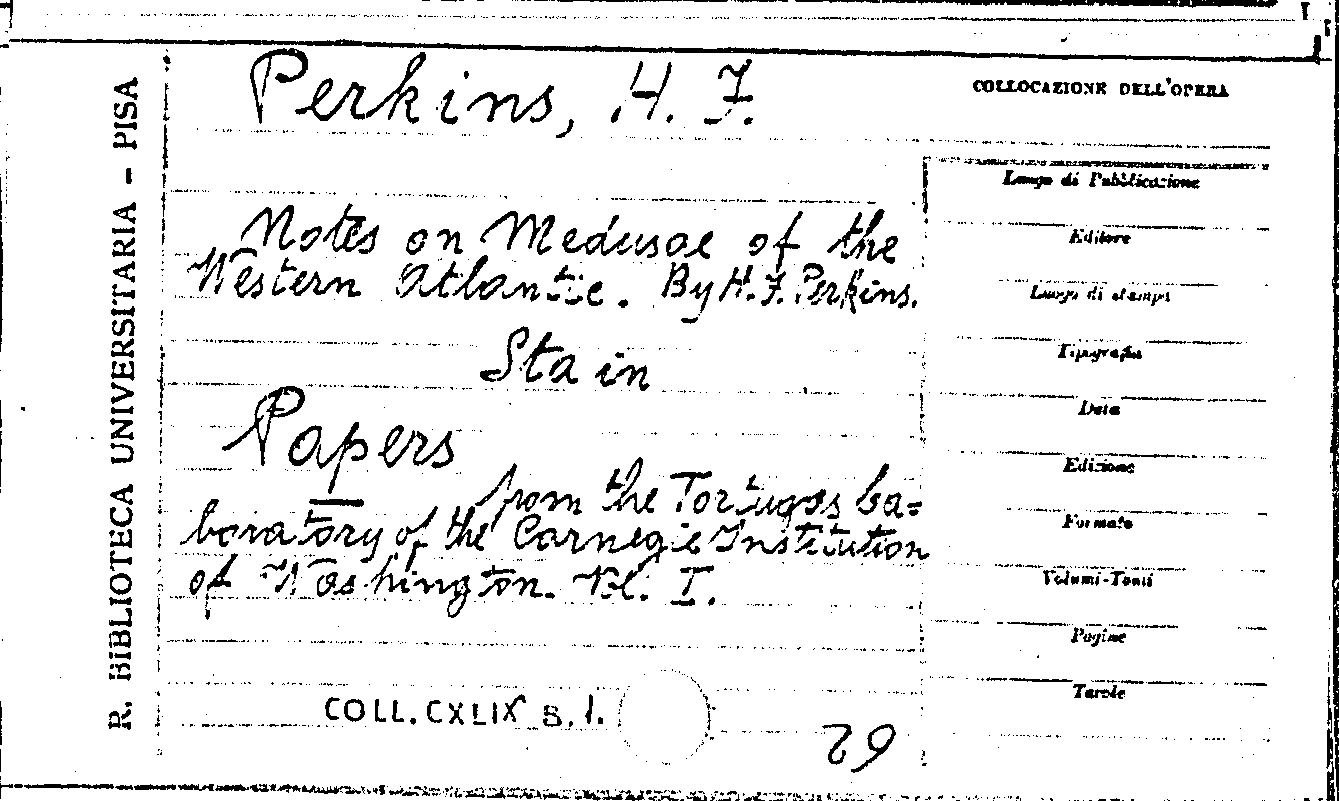 R. BIBLIOTECA UNIVERSITARIA - PISA
Perkins, H. F.
COLLOCAZIONE DELL'OPERA
Notes on Medusae of the
Western Atlantic. By H. F. Perkins.
Sta in
Papers
from the Tortugas La=
boratory of the Carnegie Institution
of Washington. Vol. I.
COLL. CXLIX B. 1.
29
Luogo di Pubblicazione
Editore
Luogo di stampa
Tipografia
Data
Edizione
Formato
Volumi-Tomi
Pagine
Tavole